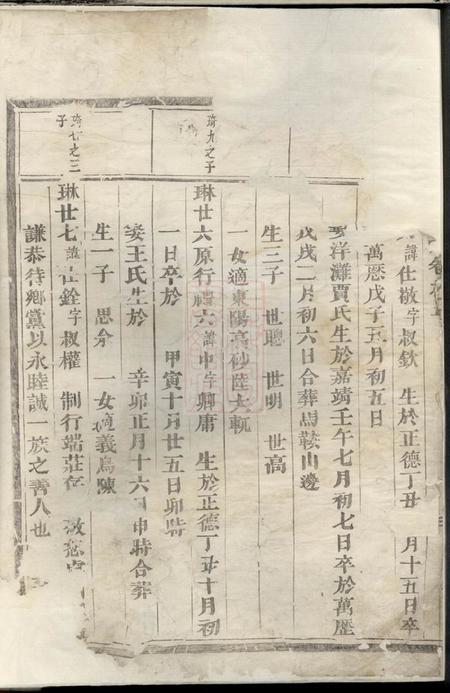 諱仕敬字叔欽 生於正德丁丑 月十五日卒
萬歷戊子五月初五日
洋灘賈氏生於嘉靖壬午七月初七日卒於萬歷
戊戌二月初六日合葬馬鞍山邊
生三子 世聰 世明 世高
一女適東陽高砂陸大軏
琦九之子
琳廿六原行禮六諱中字卿庸 生於正德丁丑十月初
一日卒於 甲寅十月廿五日卯時
娶王氏生於 辛卯正月十六日申時合葬
生一子 思 一女適義烏陳
琦七之三
子
琳廿七諱仕銓字叔權 制行端莊存
謙恭待鄉黨以永睦誠一族之善人也